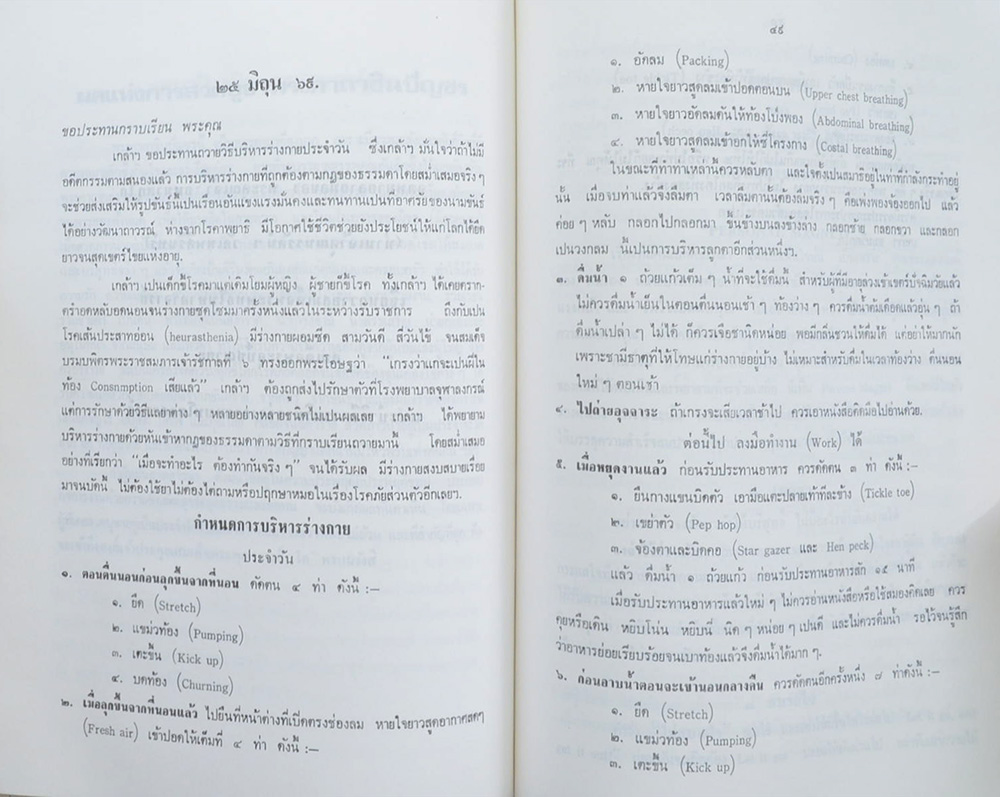 ๒๕ มิถุน ๖๕.
ขอประทานกราบเรียน พระคุณ
เกล้าฯ ขอประทานถวายวิธีบริหารร่างกายประจำวัน ซึ่งเกล้าฯ มั่นใจว่าถ้าไม่มี
อดีตกรรมตามสนองแล้ว การบริหารร่างกายที่ถูกต้องตามกฎของธรรมดาโดยสม่ำเสมอจริง ๆ
จะช่วยส่งเสริมให้รูปขันธ์นี้เป็นเรือนอันแข็งแรงมั่นคงและทนทานเป็นที่อาศรัยของนามขันธ์
ได้อย่างวัฒนาถาวรณ์ ห่างจากโรคาพยาธิ มีโอกาศใช้ชีวิตช่วยยังประโยชน์ให้แก่โลกได้ยืด
ยาวจนสุดเขตร์ไขยแห่งอายุ.
เกล้าฯ เป็นเด็กขี้โรคมาแต่เดิมโยมผู้หญิง ผู้ชายก็ขี้โรค ทั้งเกล้าฯ ได้เคยคราก-
คร่ำอดหลับอดนอนจนร่างกายซุดโซมมาครั้งหนึ่งแล้วในระหว่างรับราชการ ถึงกับเปน
โรคเส้นประสาทอ่อน (heurasthenia) มีร่างกายผอมซีด สามวันดี สี่วันไข้ จนสมเด็จ
บรมบพิตรพระราชสมภารเจ้ารัชกาลที่ ๖ ทรงออกพระโอษฐว่า “เกรงว่าแกจะเป็นฝีใน
ท้อง Consnmption เสียแล้ว” เกล้าฯ ต้องถูกส่งไปรักษาตัวที่โรงพยาบาลจุฬาลงกรณ์
แต่การรักษาด้วยวิธีแลยาต่าง ๆ หลายอย่างหลายชนิดไม่เป็นผลเลย เกล้าฯ ได้พยายาม
บริหารร่างกายด้วยหันเข้าหากฎของธรรมดาตามวิธีที่กราบเรียนถวายมานี้ โดยสม่ำเสมอ
อย่างที่เรียกว่า “เมื่อจะทำอะไร ต้องทำกันจริง ๆ” จนได้รับผล มีร่างกายสงบสบายเรื่อย
มาจนบัดนี้ ไม่ต้องใช้ยาไม่ต้องไต่ถามหรือปฤกษาหมอในเรื่องโรคภัยส่วนตัวอีกเลยฯ.
กำหนดการบริหารร่างกาย
ประจำวัน
๑. ตอนตื่นนอนก่อนลุกขึ้นจากที่นอน ดัดตน ๔ ท่า ดังนี้ :—
๑. ยืด (Stretch)
๒. แขม่วท้อง (Pumping)
๓. เตะขึ้น (Kick up)
๔. บดท้อง (Churning)
๒. เมื่อลุกขึ้นจากที่นอนแล้ว ไปยืนที่หน้าต่างที่เปิดตรงช่องลม หายใจยาวสูดอากาศสดๆ
(Fresh air) เข้าปอดให้เต็มที่ ๔ ท่า ดังนี้ :—
๔๙
๑. อัดลม (Packing)
๒. หายใจยาวสูดลมเข้าปอดตอนบน (Upper chest breathing)
๓. หายใจยาวอัดลมดันให้ท้องโป่งพอง (Abdominal breathing)
๔. หายใจยาวสูดลมเข้าอกให้ซี่โครงกาง (Costal breathing)
ในขณะที่ทำท่าเหล่านี้ควรหลับตา และใจตั้งเป็นสมาธิอยู่ในท่าที่กำลังกระทำอยู่
นั้น เมื่อจบท่าแล้วจึงลืมตา เวลาลืมตานั้นต้องลืมจริง ๆ คือเพ่งพองจ้องออกไป แล้ว
ค่อย ๆ หลับ กลอกไปกลอกมา ขึ้นข้างบนลงข้างล่าง กลอกซ้าย กลอกขวา และกลอก
เปนวงกลม นี้เป็นการบริหารลูกตาอีกส่วนหนึ่งฯ.
๓. ดื่มน้ำ ๑ ถ้วยแก้วเต็ม ๆ น้ำที่จะใช้ดื่มนี้ สำหรับผู้ที่มีอายุล่วงเข้าเขตร์ปัจฉิมวัยแล้ว
ไม่ควรดื่มน้ำเย็นในตอนตื่นนอนเช้า ๆ ท้องว่าง ๆ ควรดื่มน้ำต้มเดือดแล้วอุ่น ๆ ถ้า
ดื่มน้ำเปล่า ๆ ไม่ได้ ก็ควรเจือชานิดหน่อย พอมีกลิ่นชวนให้ดื่มได้ แต่อย่าให้มากนัก
เพราะชามีธาตุที่ให้โทษแก่ร่างกายอยู่บ้าง ไม่เหมาะสำหรับดื่มในเวลาท้องว่าง ตื่นนอน
ใหม่ ๆ ตอนเช้า
๔. ไปถ่ายอุจจาระ ถ้าเกรงจะเสียเวลาช้าไป ควรเอาหนังสือติดมือไปอ่านด้วย.
ต่อนี้ไป ลงมือทำงาน (Work) ได้
๕. เมื่อหยุดงานแล้ว ก่อนรับประทานอาหาร ควรดัดตน ๓ ท่า ดังนี้ :—
๑. ยืนกางแขนบิดตัว เอามือแตะปลายเท้าทีละข้าง (Tickle toe)
๒. เขย่าตัว (Pep hop)
๓. จ้องตาและบิดคอ (Star gazer และ Hen peck)
แล้ว ดื่มน้ำ ๑ ถ้วยแก้ว ก่อนรับประทานอาหารสัก ๑๕ นาที
เมื่อรับประทานอาหารแล้วใหม่ ๆ ไม่ควรอ่านหนังสือหรือใช้สมองคิดเลย ควร
คุยหรือเดิน หยิบโน่น หยิบนี่ นิด ๆ หน่อย ๆ เป็นดี และไม่ควรดื่มน้ำ รอไว้จนรู้สึก
ว่าอาหารย่อยเรียบร้อยจนเบาท้องแล้วจึงดื่มน้ำได้มาก ๆ.
๖. ก่อนอาบน้ำตอนจะเข้านอนกลางคืน ควรดัดตนอีกครั้งหนึ่ง ๗ ท่าดังนี้ :—
๑. ยืด (Stretch)
๒. แขม่วท้อง (Pumping)
๓. เตะขึ้น (Kick up)